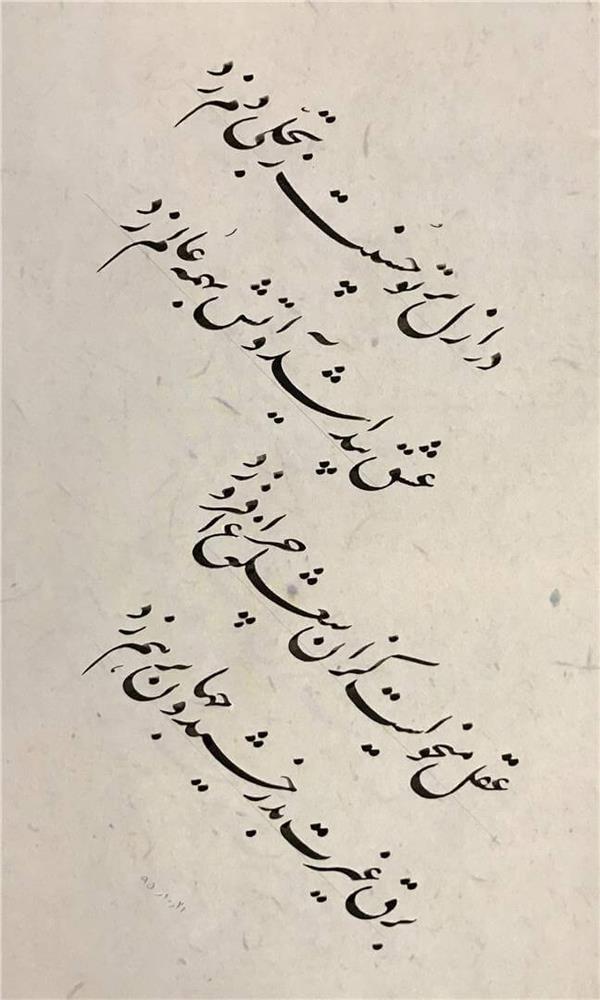 در ازل پرتو حسنت ز تجلّی دم زد
عشق پیدا شد و آتش بهمه عالم زد
عقل میخواست کزان شعله چراغ افروزد
برق غیرت بدرخشید و جهان برهم زد